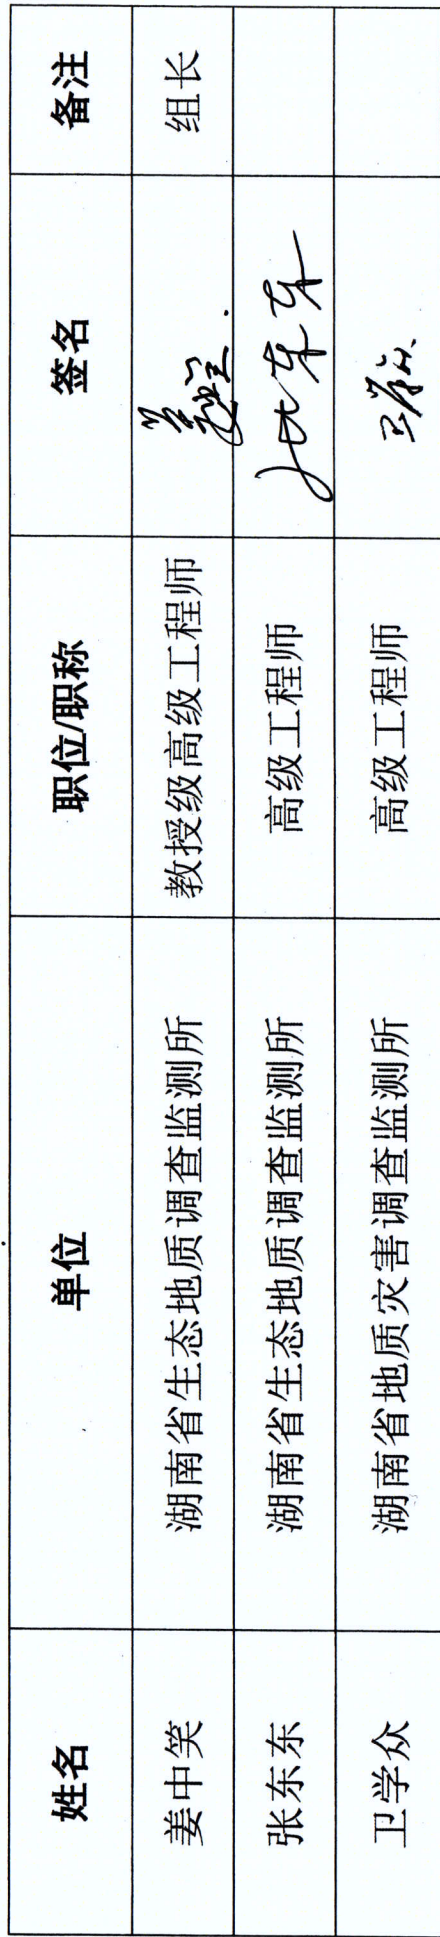 姓名 单位 职位/职称 签名 备注
姜中笑 湖南省生态地质调查监测所 教授级高级工程师 组长
张东东 湖南省生态地质调查监测所 高级工程师 张东东
卫学众 湖南省地质灾害调查监测所 高级工程师 卫学众